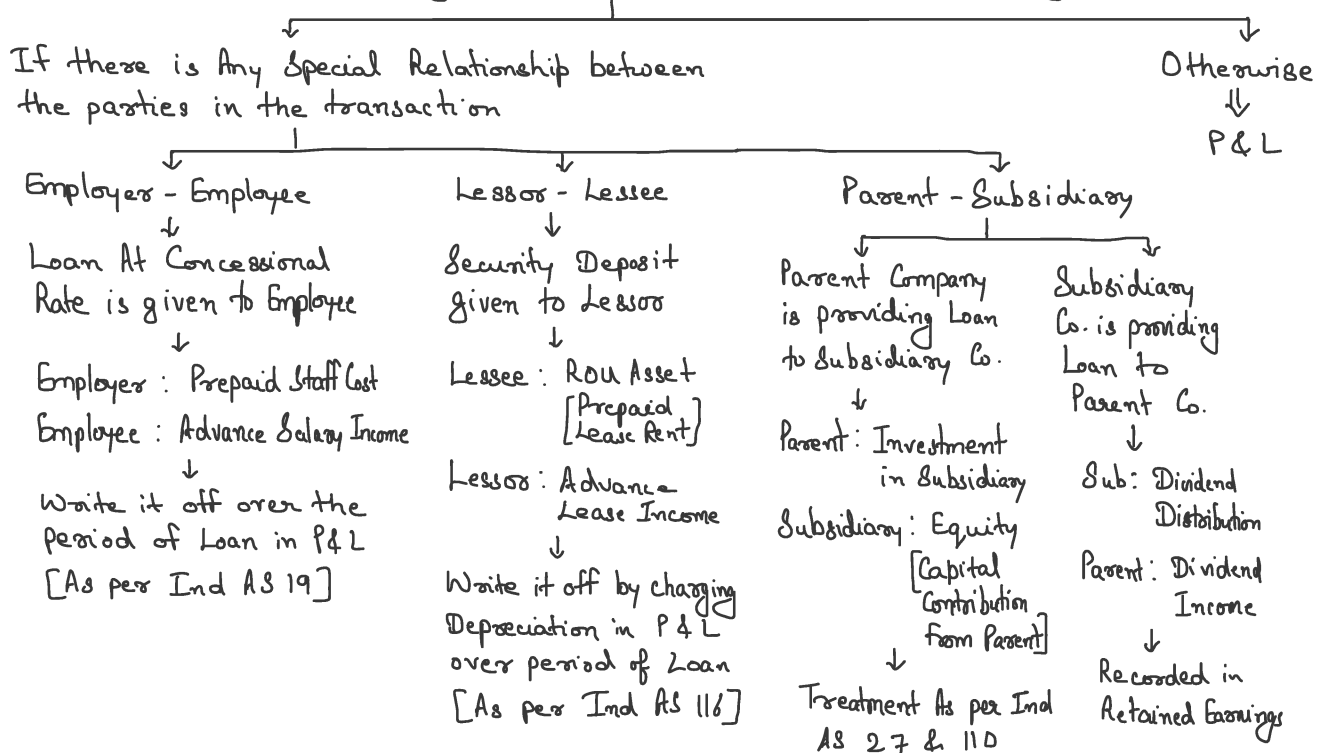 If there is Any Special Relationship between
the parties in the transaction
Otherwise
P & L
Employer - Employee
Loan At Concessional
Rate is given to Employee
Employer : Prepaid Staff Cost
Employee : Advance Salary Income
Write it off over the
period of Loan in P&L
[As per Ind AS 19]
Lessor - Lessee
Security Deposit
given to Lessor
Lessee : ROU Asset
[Prepaid
Lease Rent]
Lessor : Advance
Lease Income
Write it off by charging
Depreciation in P & L
over period of Loan
[As per Ind AS 116]
Parent - Subsidiary
Parent Company
is providing Loan
to Subsidiary Co.
Parent : Investment
in Subsidiary
Subsidiary : Equity
[Capital
Contribution
from Parent]
Treatment As per Ind
AS 27 & 110
Subsidiary
Co. is providing
Loan to
Parent Co.
Sub : Dividend
Distribution
Parent : Dividend
Income
Recorded in
Retained Earnings